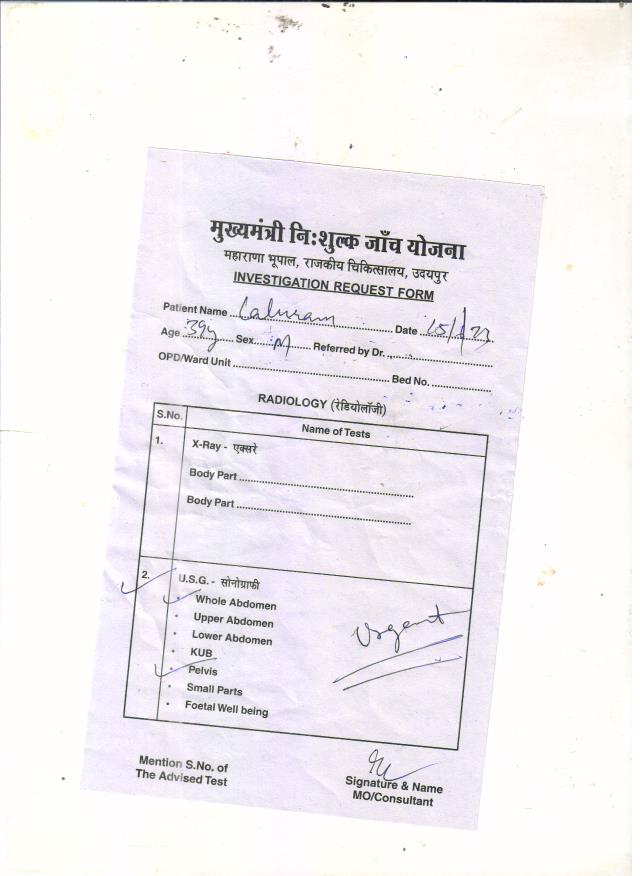 मुख्यमंत्री निःशुल्क जाँच योजना
महाराणा भूपाल, राजकीय चिकित्सालय, उदयपुर
INVESTIGATION REQUEST FORM
Patient Name Caluram Date
Age 39y Sex M Referred by Dr.
OPD/Ward Unit Bed No.
RADIOLOGY (रेडियोलॉजी)
S.No. Name of Tests
1. X-Ray - एक्सरे
Body Part
Body Part
2. U.S.G. - सोनोग्राफी
Whole Abdomen
Upper Abdomen
Lower Abdomen
KUB
Pelvis
Small Parts
Foetal Well being
Urgent
Mention S.No. of
The Advised Test
Signature & Name
MO/Consultant